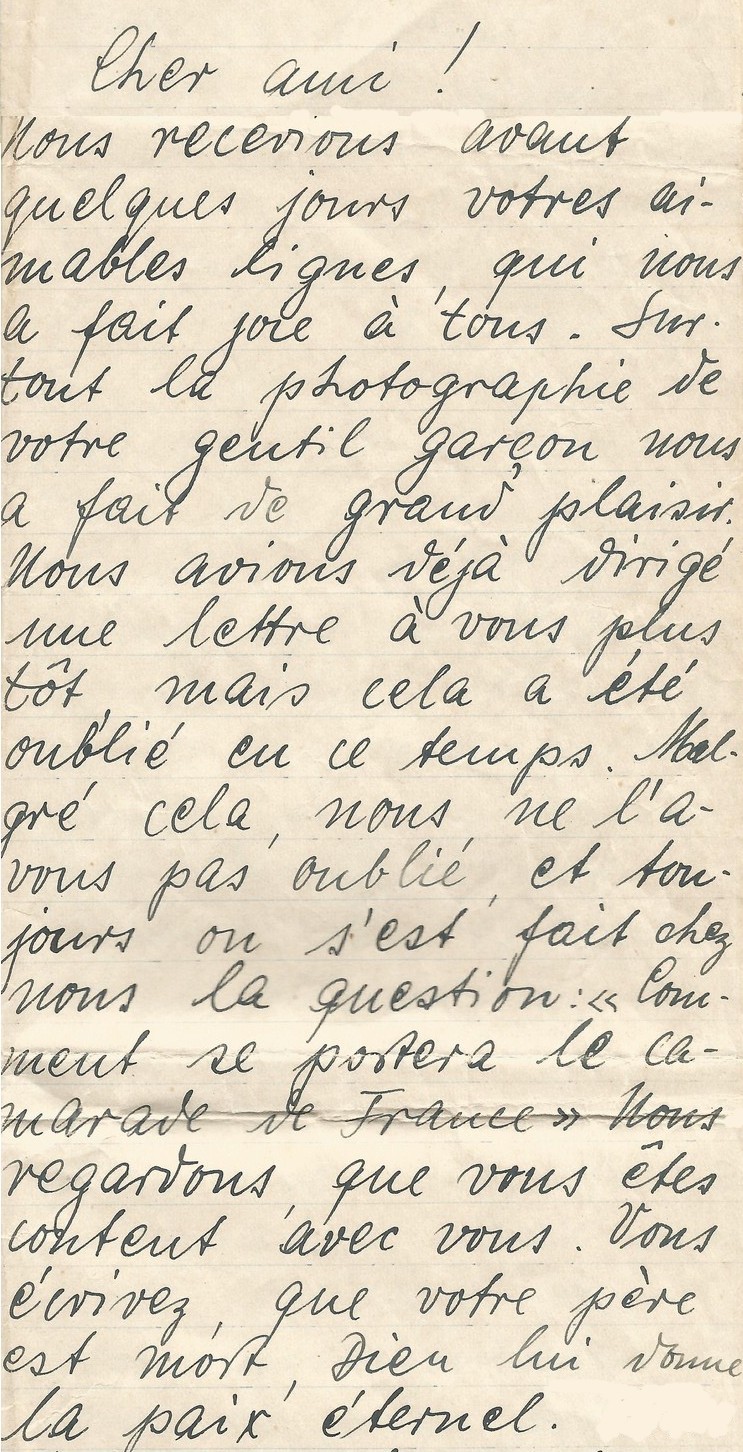 Cher ami !
Nous recevions avant
quelques jours votres ai-
mables lignes, qui nous
a fait joie à tous. Sur-
tout la photographie de
votre gentil garçon nous
a fait de grand plaisir.
Nous avions déjà dirigé
une lettre à vous plus
tôt, mais cela a été
oublié en ce temps. Mal-
gré cela, nous, ne l'a-
vons pas oublié, et tou-
jours on s'est fait chez
nous la question: « Com-
ment se portera le ca-
marade de France » Nous
regardons, que vous êtes
content avec vous. Vous
écrivez, que votre père
est mort, Dieu lui donne
la paix éternel.